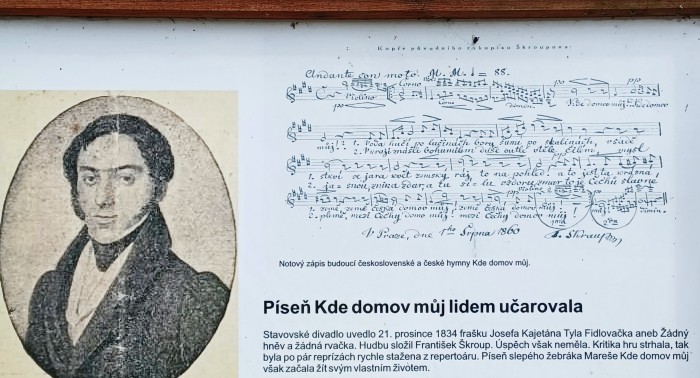 Kopie původního rukopisu Škroupova:
Andante con moto. M. M. = 88.
Violino
Corno
Corno
Kde domov můj kde domov
můj! 1. Voda hučí po lučinách bory šumí po skalinách, v sadě
1. stkví se jara květ zemský ráj, to na pohled a to jest ta krásná
1. země, země česká domov můj! země česká domov můj!
domov můj! mezi Čechy domov můj!
V Praze, dne Srpna 1860
Notový zápis budoucí československé a české hymny Kde domov můj.
Píseň Kde domov můj lidem učarovala
Stavovské divadlo uvedlo 21. prosince 1834 frašku Josefa Kajetána Tyla Fidlovačka aneb Žádný
hněv a žádná rvačka. Hudbu složil František Škroup. Úspěch však neměla. Kritika hru strhala, tak
byla po pár reprízách rychle stažena z repertoáru. Píseň slepého žebráka Mareše Kde domov můj
však začala žít svým vlastním životem.